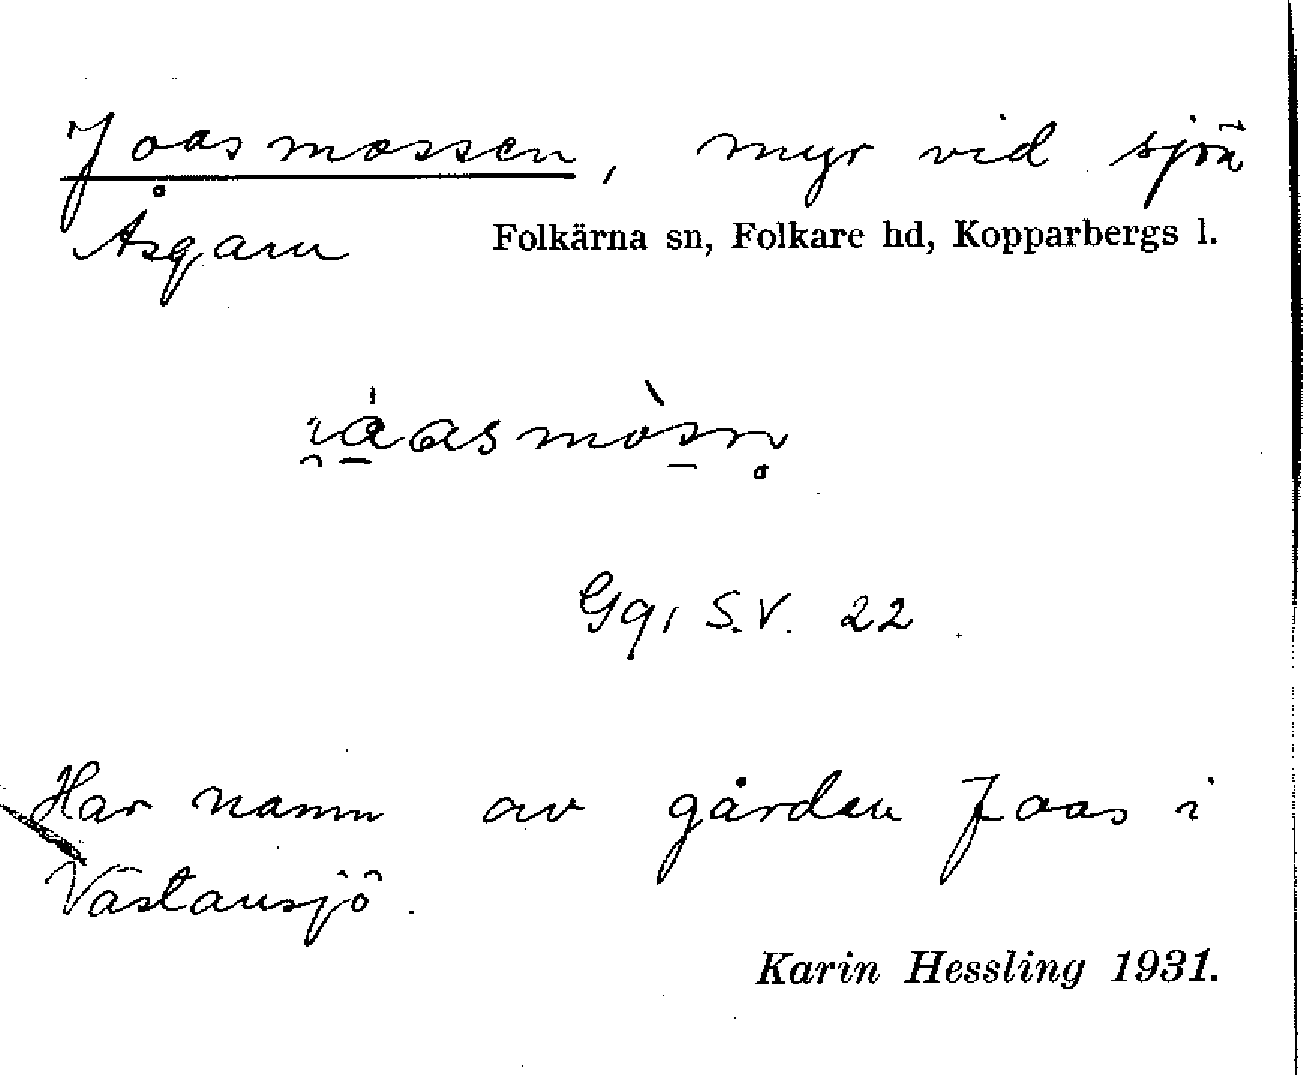 Joasmossen, myr vid sjön
Åsgarn Folkärna sn, Folkare hd, Kopparbergs l.
Gq, S.V. 22
Har namn av gården Joas i
Västansjö.
Karin Hessling 1931.